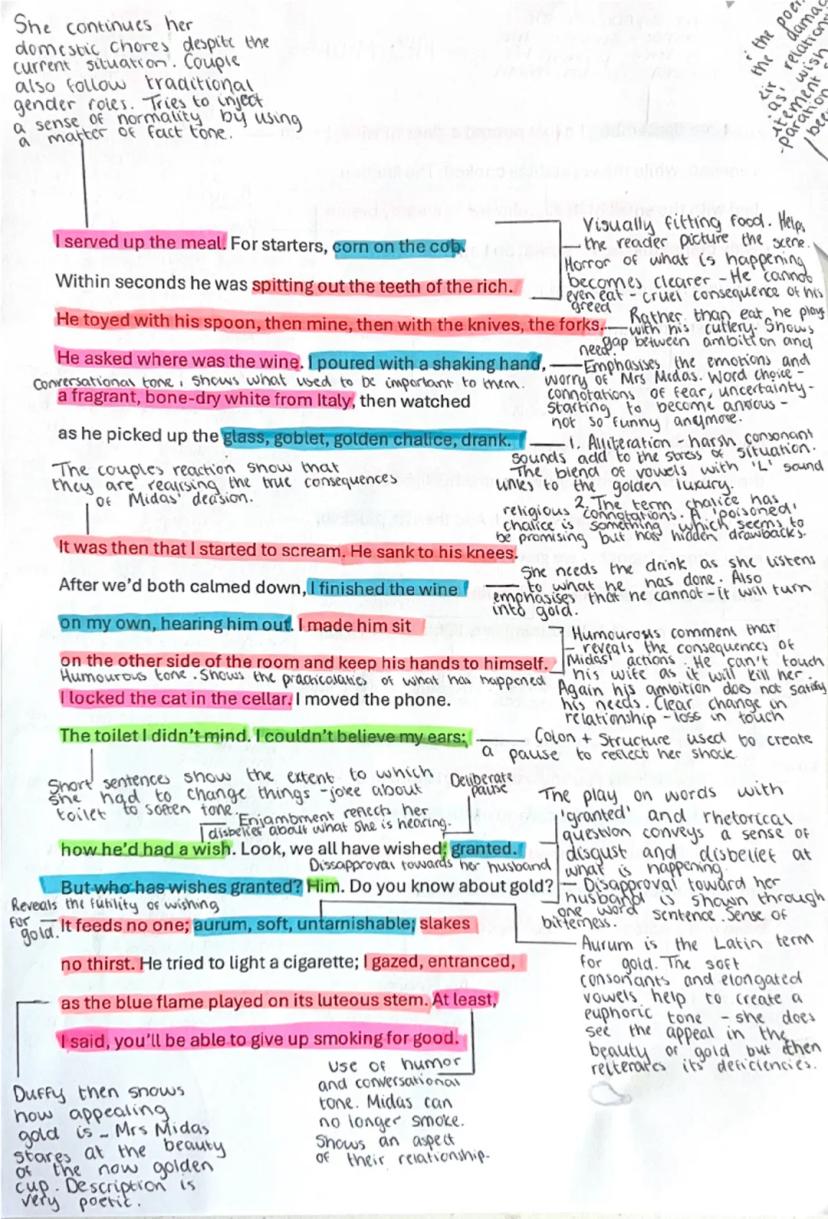 She continues her
domestic chores despite the
current situation. Couple
also follow traditional
gender roles. Tries to inject
a sense of normality by using
a matter of fact tone.
I served up the meal. For starters, corn on the cob.
Within seconds he was spitting out the teeth of the rich.
He toyed with his spoon, then mine, then with the knives, the forks.
He asked where was the wine. I poured with a shaking hand,
Conversational tone; shows what used to be important to them.
a fragrant, bone-dry white from Italy, then watched
as he picked up the glass, goblet, golden chalice, drank.
The couples reaction show that
they are realising the true consequences
of Midas' decision.
It was then that I started to scream. He sank to his knees.
After we'd both calmed down, I finished the wine
on my own, hearing him out. I made him sit
on the other side of the room and keep his hands to himself.
Humourous tone. Shows the practicalities of what has happened
I locked the cat in the cellar. I moved the phone.
The toilet I didn't mind. I couldn't believe my ears:
Short sentences show the extent to which
she had to change things - joke about
toilet to soften tone.
Enjambment reflects her
disbelief about what she is hearing.
Deliberate
pause
how he'd had a wish. Look, we all have wished; granted.
Dissapproval towards her husband
But who has wishes granted? Him. Do you know about gold?
Reveals the futility of wishing
for
gold.
It feeds no one; aurum, soft, untarnishable; slakes
no thirst. He tried to light a cigarette; I gazed, entranced,
as the blue flame played on its luteous stem. At least,
I said, you'll be able to give up smoking for good.
Visually fitting food. Help
the reader picture the scene.
Horror of what is happening
becomes clearer - He cannot
even eat - cruel consequence of his
greed
Rather than eat, he plays
with his cutlery. Shows
gap between ambition and
need.
Emphasises the emotions and
worry of Mrs Midas. Word choice -
connotations of fear, uncertainty -
starting to become anxious -
not so funny anymore.
1. Alliteration - harsh consonant
sounds add to the stress of situation.
The blend of vowels with 'L' sound
links to the golden luxury.
2. The term chalice has
religious connotations. A 'poisoned'
chalice is something which seems to
be promising but has hidden drawbacks.
She needs the drink as she listens
to what he has done. Also
emphasises that he cannot - it will turn
into gold.
Humourous comment that
reveals the consequences of
Midas' actions. He can't touch
his wife as it will kill her.
Again his ambition does not satisfy
his needs. Clear change in
relationship - loss in touch
Colon + Structure used to create
a pause to reflect her shock.
The play on words with
'granted' and rhetorical
question conveys a sense of
disgust and disbelief at
what is happening.
Disapproval toward her
husband is shown through
one word sentence. Sense of
bitterness.
Aurum is the Latin term
for gold. The soft
consonants and elongated
vowels help to create a
euphoric tone - she does
see the appeal in the
beauty of gold but then
reiterates its deficiencies.
Duffy then shows
how appealing
gold is - Mrs Midas
stares at the beauty
of the now golden
cup. Description is
very poetic.
Use of humor
and conversational
tone. Midas can
no longer smoke.
Shows an aspect
of their relationship.